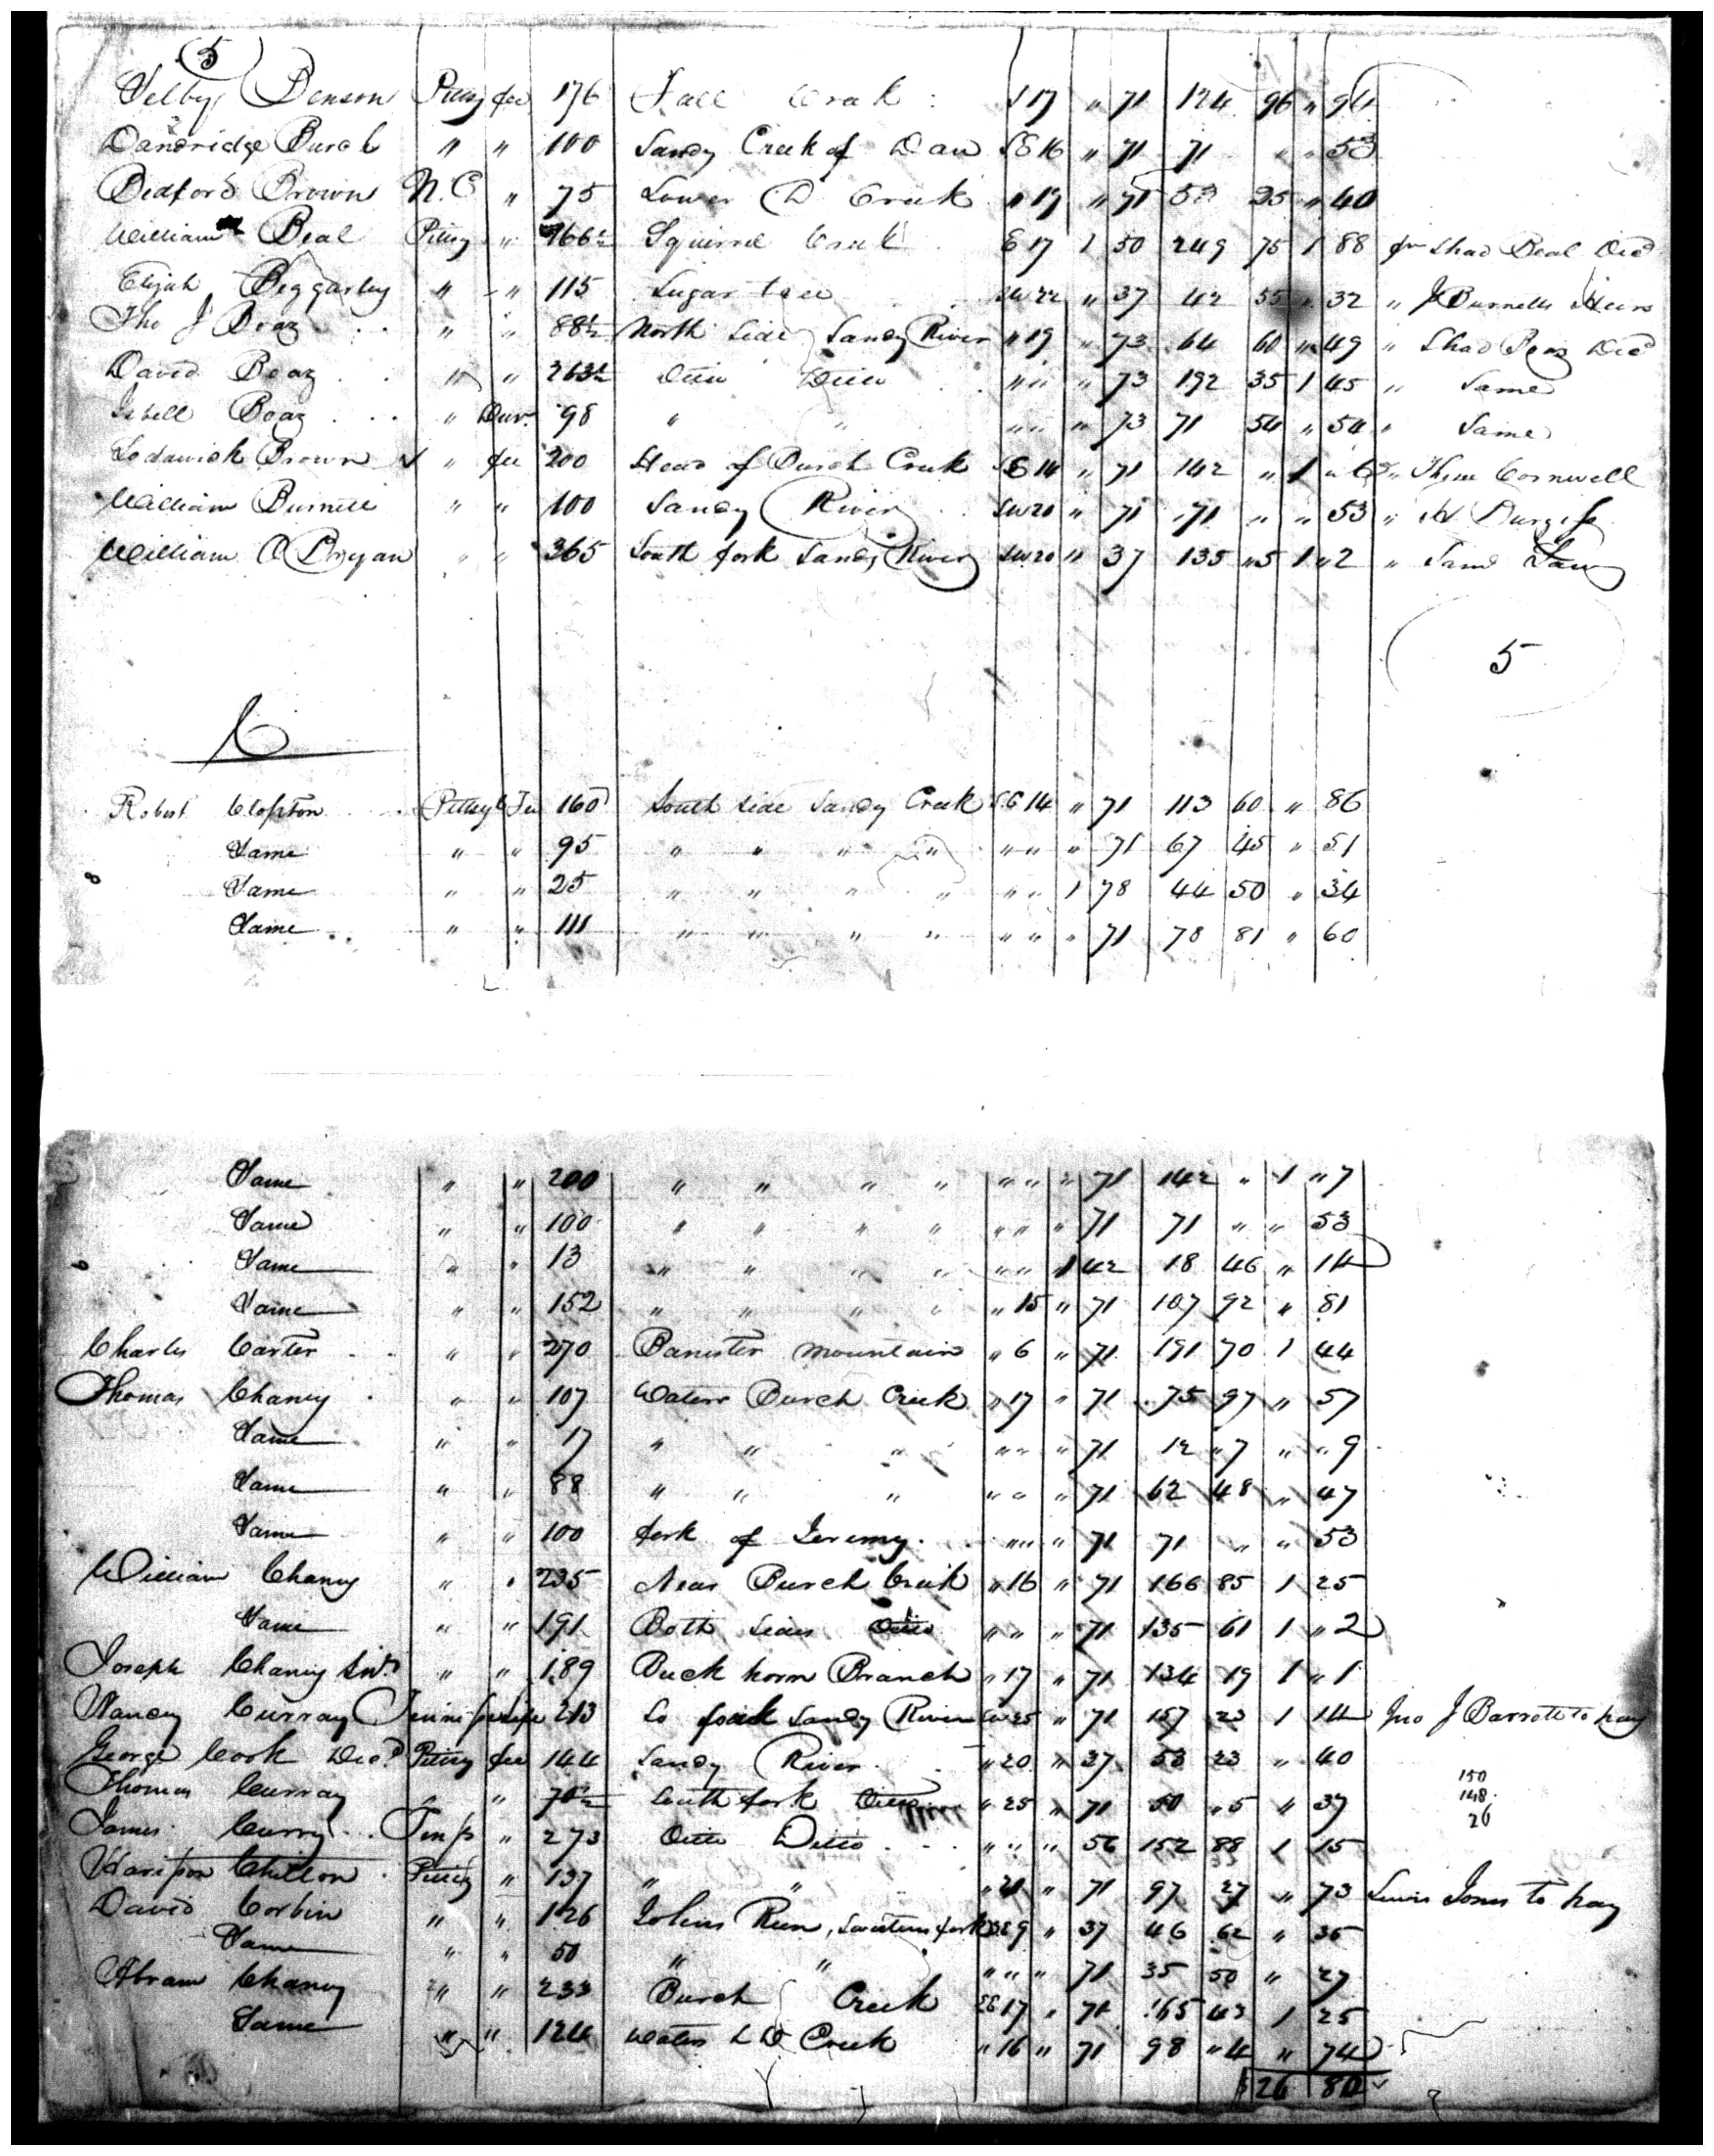 5
Selby Benson Pittsy fee 176 Fall Creek S 17 " 71 124 96 " 94
Dandridge Burch " " 100 Sandy Creek of Dan SE 16 " 71 71 " " 53
Bedford Brown N.C " 75 Lower D Creek " 17 " 71 53 25 " 40
William Beal Pittsy " 166½ Squirrel Creek E 17 1 50 249 75 1 88 fm Shad Beal Decd
Elijah Beggarley " " 115 Sugar tree SW 22 " 37 42 55 " 32 " J Burnetts Heirs
Tho J Boaz " " 88½ North Side Sandy River " 19 " 73 64 60 " 49 " Shad Boaz Decd
David Boaz " " 263½ Ditto Ditto " " " 73 192 35 1 45 " Same
Isbell Boaz " Dur. 98 " " " " " 73 71 54 " 54 " Same
Lodawick Brown " fee 200 Head of Burch Creek SE 14 " 71 142 " 1 " 6 " Cornwell
William Burnett " " 100 Sandy River SW 20 " 71 71 " " 53 "
William O Bryan " " 365 South fork Sandy River SW 20 " 37 135 " 5 1 " 2 " Same
5
C
Robert Clopton Pittsy Fee 160 South side Sandy Creek SE 14 " 71 113 60 " 86
Same " " 95 " " " " " " " 71 67 45 " 51
Same " " 25 " " " " " " 1 78 44 50 " 34
Same " " 111 " " " " " " " 71 78 81 " 60
Same " " 200 " " " " " " " 71 142 " 1 " 7
Same " " 100 " " " " " " " 71 71 " " 53
Same " " 13 " " " " " " 1 42 18 46 " 14
Same " " 152 " " " " " 15 " 71 107 92 " 81
Charles Carter " " 270 Banister Mountain " 6 " 71 191 70 1 44
Thomas Chaney " " 107 Waters Burch Creek " 17 " 71 75 97 " 57
Same " " 17 " " " " " " 71 12 " 7 " " 9
Same " " 88 " " " " " " 71 62 48 " 47
Same " " 100 fork of Jeremy " " " 71 71 " " 53
William Chaney " " 235 Near Burch Creek " 16 " 71 166 85 1 25
Same " " 191 Both sides Ditto " " " 71 135 61 1 " 2
Joseph Chaney Snr. " " 189 Buck horn Branch " 17 " 71 134 19 1 " 1
Nancy Curray life 213 So fork Sandy River SW 25 " 71 157 23 1 14 Jno J Barrott to pay
George Cook Decd Pittsy fee 144 Sandy River " 20 " 37 53 23 " 40
150
148
26
Thomas Curray " " 70½ South fork Ditto " 25 " 71 50 " 5 " 37
James Curry " 273 Ditto Ditto " " " 56 152 88 1 15
Harrison Chilton Pittsy " 137 " " " 21 " 71 97 27 " 73 Lewis Jones to pay
David Corbin " " 126 Johns Run, fork SE 9 " 37 46 62 " 35
Same " " 50 " " " " " 71 35 50 " 27
Abram Chaney " " 233 Burch Creek SE 17 " 71 165 43 1 25
Same " " 124 Waters L D Creek " 16 " 71 98 " 4 " 74
$ 26 80